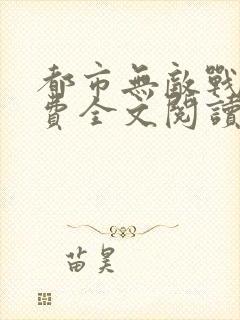 都市無敵戰
費全文閱讀
苗昊